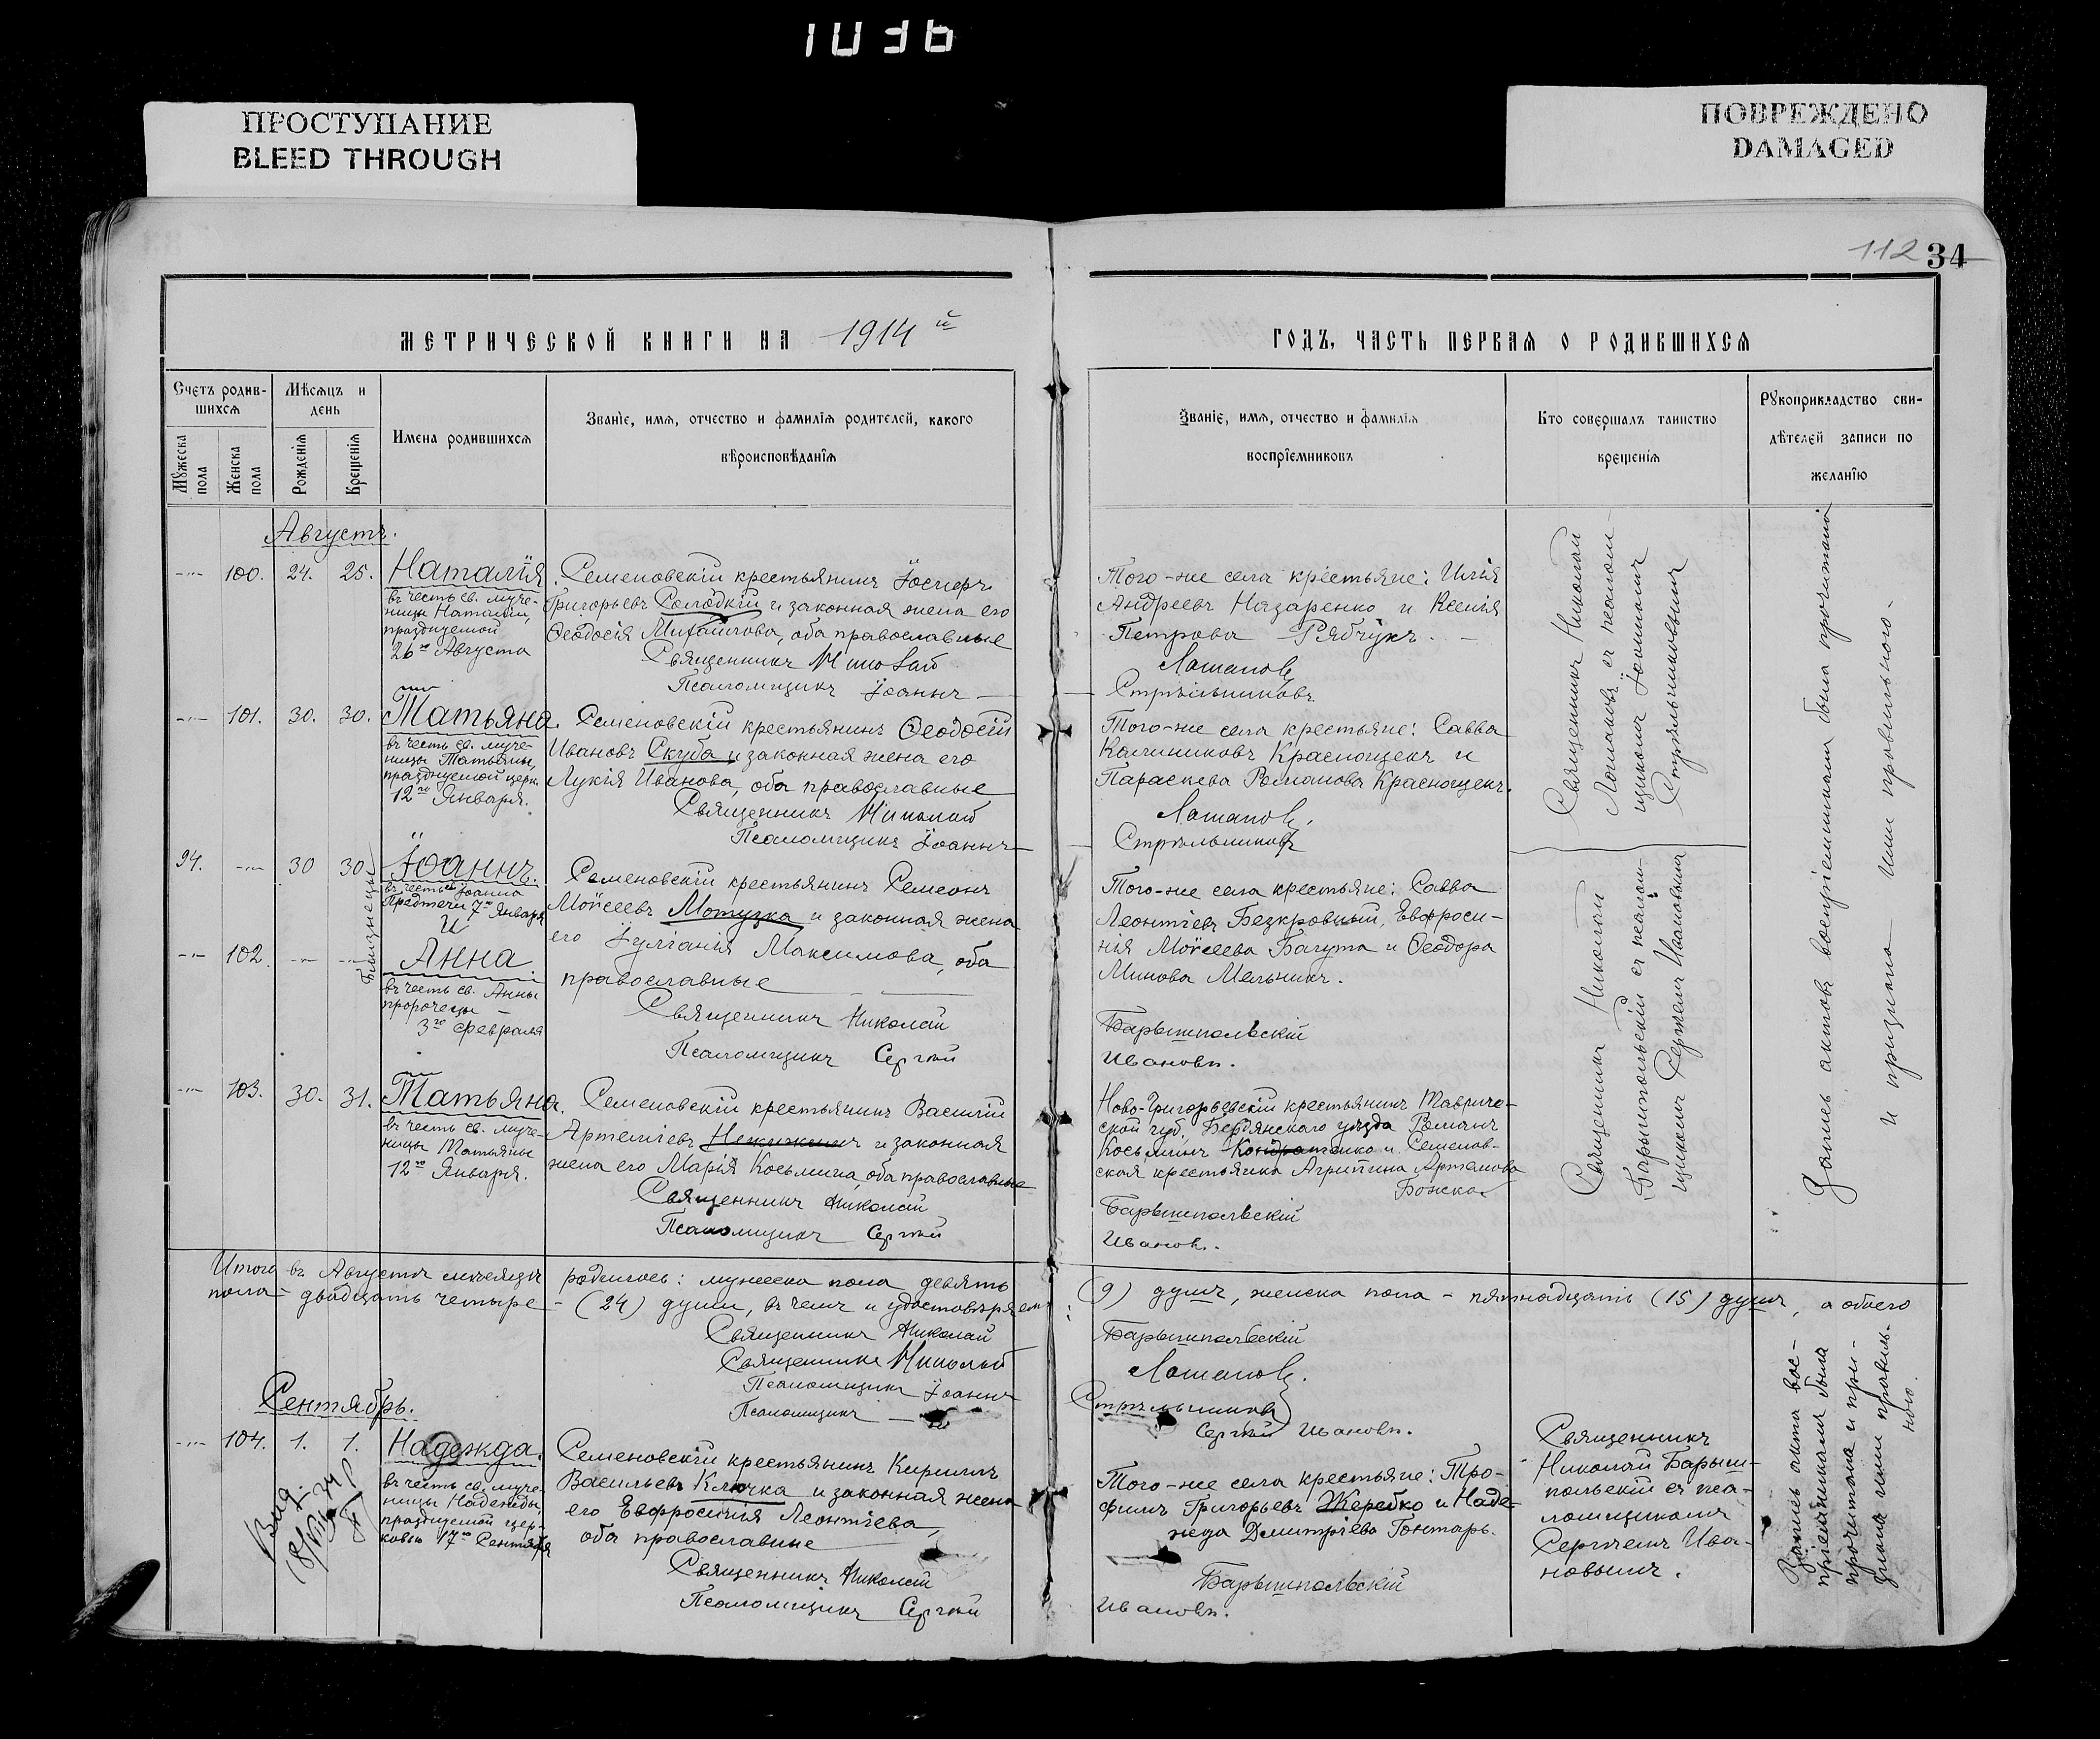 1036
ПРОСТУПАНИЕ
BLEED THROUGH
ПОВРЕЖДЕНО
DAMAGED
112 34
МЕТРИЧЕСКОЙ КНИГИ НА 1914 й
Счетъ родив-
шихся
Мѣсяцъ и
день
Мужеска
пола
Женска
пола
Рожденія
Крещенія
Имена родившихся
Званіе, имя, отчество и фамилія родителей, какого
вѣроисповѣданія
Августъ.
100. 24. 25.
Наталія
въ честь св. муче-
ницы Наталіи,
празднуемой
26го Августа
Семеновскій крестьянинъ Іосифъ
Григорьевъ Солодкій и законная жена его
Ѳеодосія Михайлова, оба православные
Священникъ Николай
Псаломщикъ Іоаннъ
101. 30. 30.
Татьяна.
въ честь св. муче-
ницы Татьяны,
празднуемой церк.
12го Января.
Семеновскій крестьянинъ Ѳеодосій
Ивановъ Скуба и законная жена его
Лукія Иванова, оба православные
Священникъ Николай
Псаломщикъ Іоаннъ
94. 30 30
Близнецы
Іоаннъ.
въ честь св. Іоанна
Предтечи 7го Января
и
102.
Анна.
въ честь св. Анны
пророчецы
3го февраля
Семеновскій крестьянинъ Семеонъ
Моѵсеевъ Мотузка и законная жена
его Іуліанія Максимова, оба
православные
Священникъ Николай
Псаломщикъ Сергѣй
103. 30. 31.
Татьяна.
въ честь св. муче-
ницы Татьяны
12го Января.
Семеновскій крестьянинъ Василій
Артеміевъ и законная
жена его Марія Косьмина, оба православные
Священникъ Николай
Псаломщикъ Сергѣй
Итого въ Августѣ мѣсяцѣ родилось: мужеска пола девять
пола - двадцать четыре - (24) души, въ чемъ и удостовѣряемъ:
Священникъ Николай
Священникъ Николай
Псаломщикъ Іоаннъ
Псаломщикъ
Сентябрь.
104. 1. 1.
Выд.
Надежда.
въ честь св. муче-
ницы Надежды,
празднуемой цер-
ковью 17го Сентября
Семеновскій крестьянинъ Кириллъ
Васильевъ Ключка и законная жена
его Евфросинія Леонтіева,
оба православные
Священникъ Николай
Псаломщикъ Сергѣй
ГОДЪ, ЧАСТЬ ПЕРВАЯ О РОДИВШИХСЯ
Званіе, имя, отчество и фамилія
воспріемниковъ
Кто совершалъ таинство
крещенія
Рукоприкладство сви-
дѣтелей записи по
желанію
Того-же села крестьяне: Илія
Андреевъ Назаренко и Ксенія
Петрова Рябчукъ.
Лотановъ
Стрѣльниковъ
Того-же села крестьяне: Савва
Калиниковъ Краснощекъ и
Параскева Романова Краснощекъ.
Лотановъ.
Стрѣльниковъ
Того-же села крестьяне: Савва
Леонтіевъ Безкровный, Евфроси-
нія Моѵсеева Багута и Ѳеодора
Минова Мельникъ.
Барышпольскій
Ивановъ.
Ново-Григорьевскій крестьянинъ Тавриче-
ской губ. Бердянскаго уѣзда Романъ
Косьминъ Кондратенко и Семенов-
ская крестьянка Агрипина Артемова
Божко
Барышпольскій
Ивановъ.
(9) душъ, женска пола - пятнадцать (15) душъ, а обоего
Барышпольскій
Лотановъ.
Стрѣльниковъ
Сергѣй Ивановъ.
Того-же села крестьяне: Тро-
фимъ Григорьевъ Жеребко и Наде-
жда Димитріева Гонтарь.
Барышпольскій
Ивановъ.
Священникъ Николай
Лотановъ съ псалом-
щикомъ Іоанномъ
Стрѣльниковымъ
Священникъ Николай
Барышпольскій съ псалом-
щикомъ Сергѣемъ Ивановымъ
Священникъ
Николай Барыш-
польскій съ пса-
ломщикомъ
Сергѣемъ Ива-
новымъ.
Запись актовъ воспріемниками была прочитана
и признана ими правильною.
Запись акта вос-
пріемниками была
прочитана и при-
знана ими правиль-
ною.